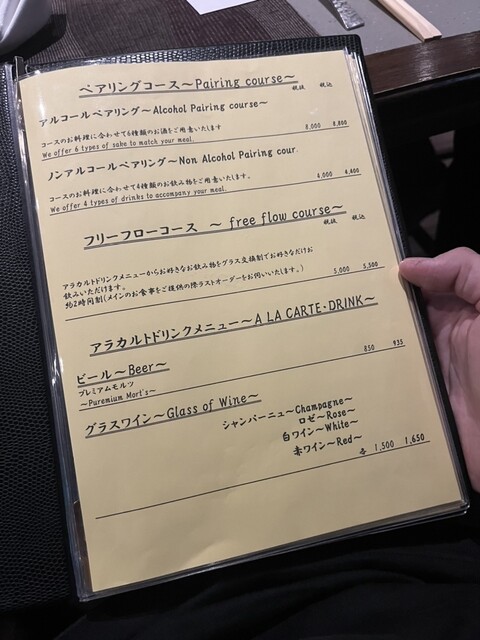 ペアリングコース～Pairing course～
税抜 税込
アルコールペアリング～Alcohol Pairing course～
コースのお料理に合わせて6種類のお酒をご用意いたします 8,000 8,800
We offer 6 types of sake to match your meal.
ノンアルコールペアリング～Non Alcohol Pairing cour.
コースのお料理に合わせて4種類のお飲み物をご用意いたします。 4,000 4,400
We offer 4 types of drinks to accompany your meal.
フリーフローコース ～ free flow course～
税抜 税込
アラカルトドリンクメニューからお好きなお飲み物をグラス交換制でお好きなだけお
飲みいただけます。
約2時間制(メインのお食事をご提供の際ラストオーダーをお伺いいたします。) 5,000 5,500
アラカルトドリンクメニュー～A LA CARTE・DRINK～
ビール～Beer～
プレミアムモルツ 850 935
～Puremium Mort's～
グラスワイン～Glass of Wine～
シャンパーニュ～Champagne～
ロゼ～Rose～
白ワイン～White～
赤ワイン～Red～
各 1,500 1,650